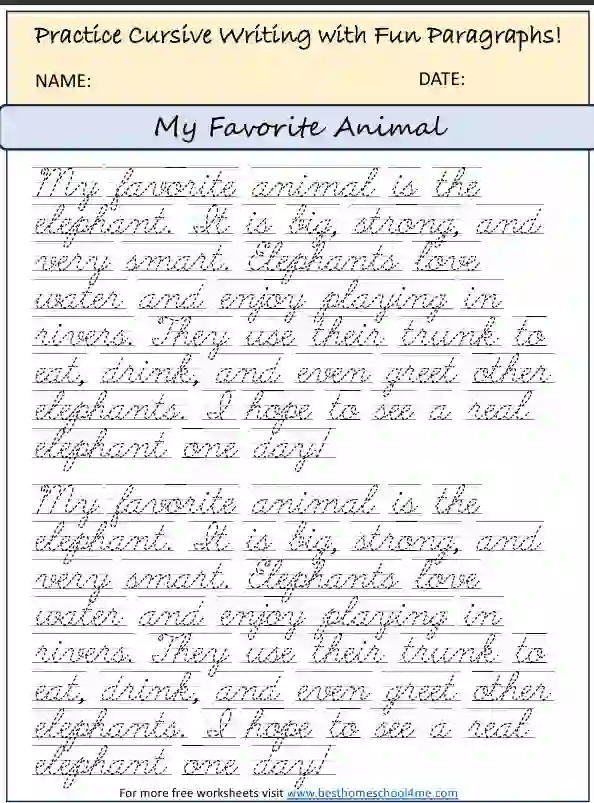 Practice Cursive Writing with Fun Paragraphs!
NAME:
DATE:
My Favorite Animal
My favorite animal is the
elephant. It is big, strong, and
very smart. Elephants love
water and enjoy playing in
rivers. They use their trunk to
eat, drink, and even greet other
elephants. I hope to see a real
elephant one day!
My favorite animal is the
elephant. It is big, strong, and
very smart. Elephants love
water and enjoy playing in
rivers. They use their trunk to
eat, drink, and even greet other
elephants. I hope to see a real
elephant one day!
For more free worksheets visit www.besthomeschool4me.com